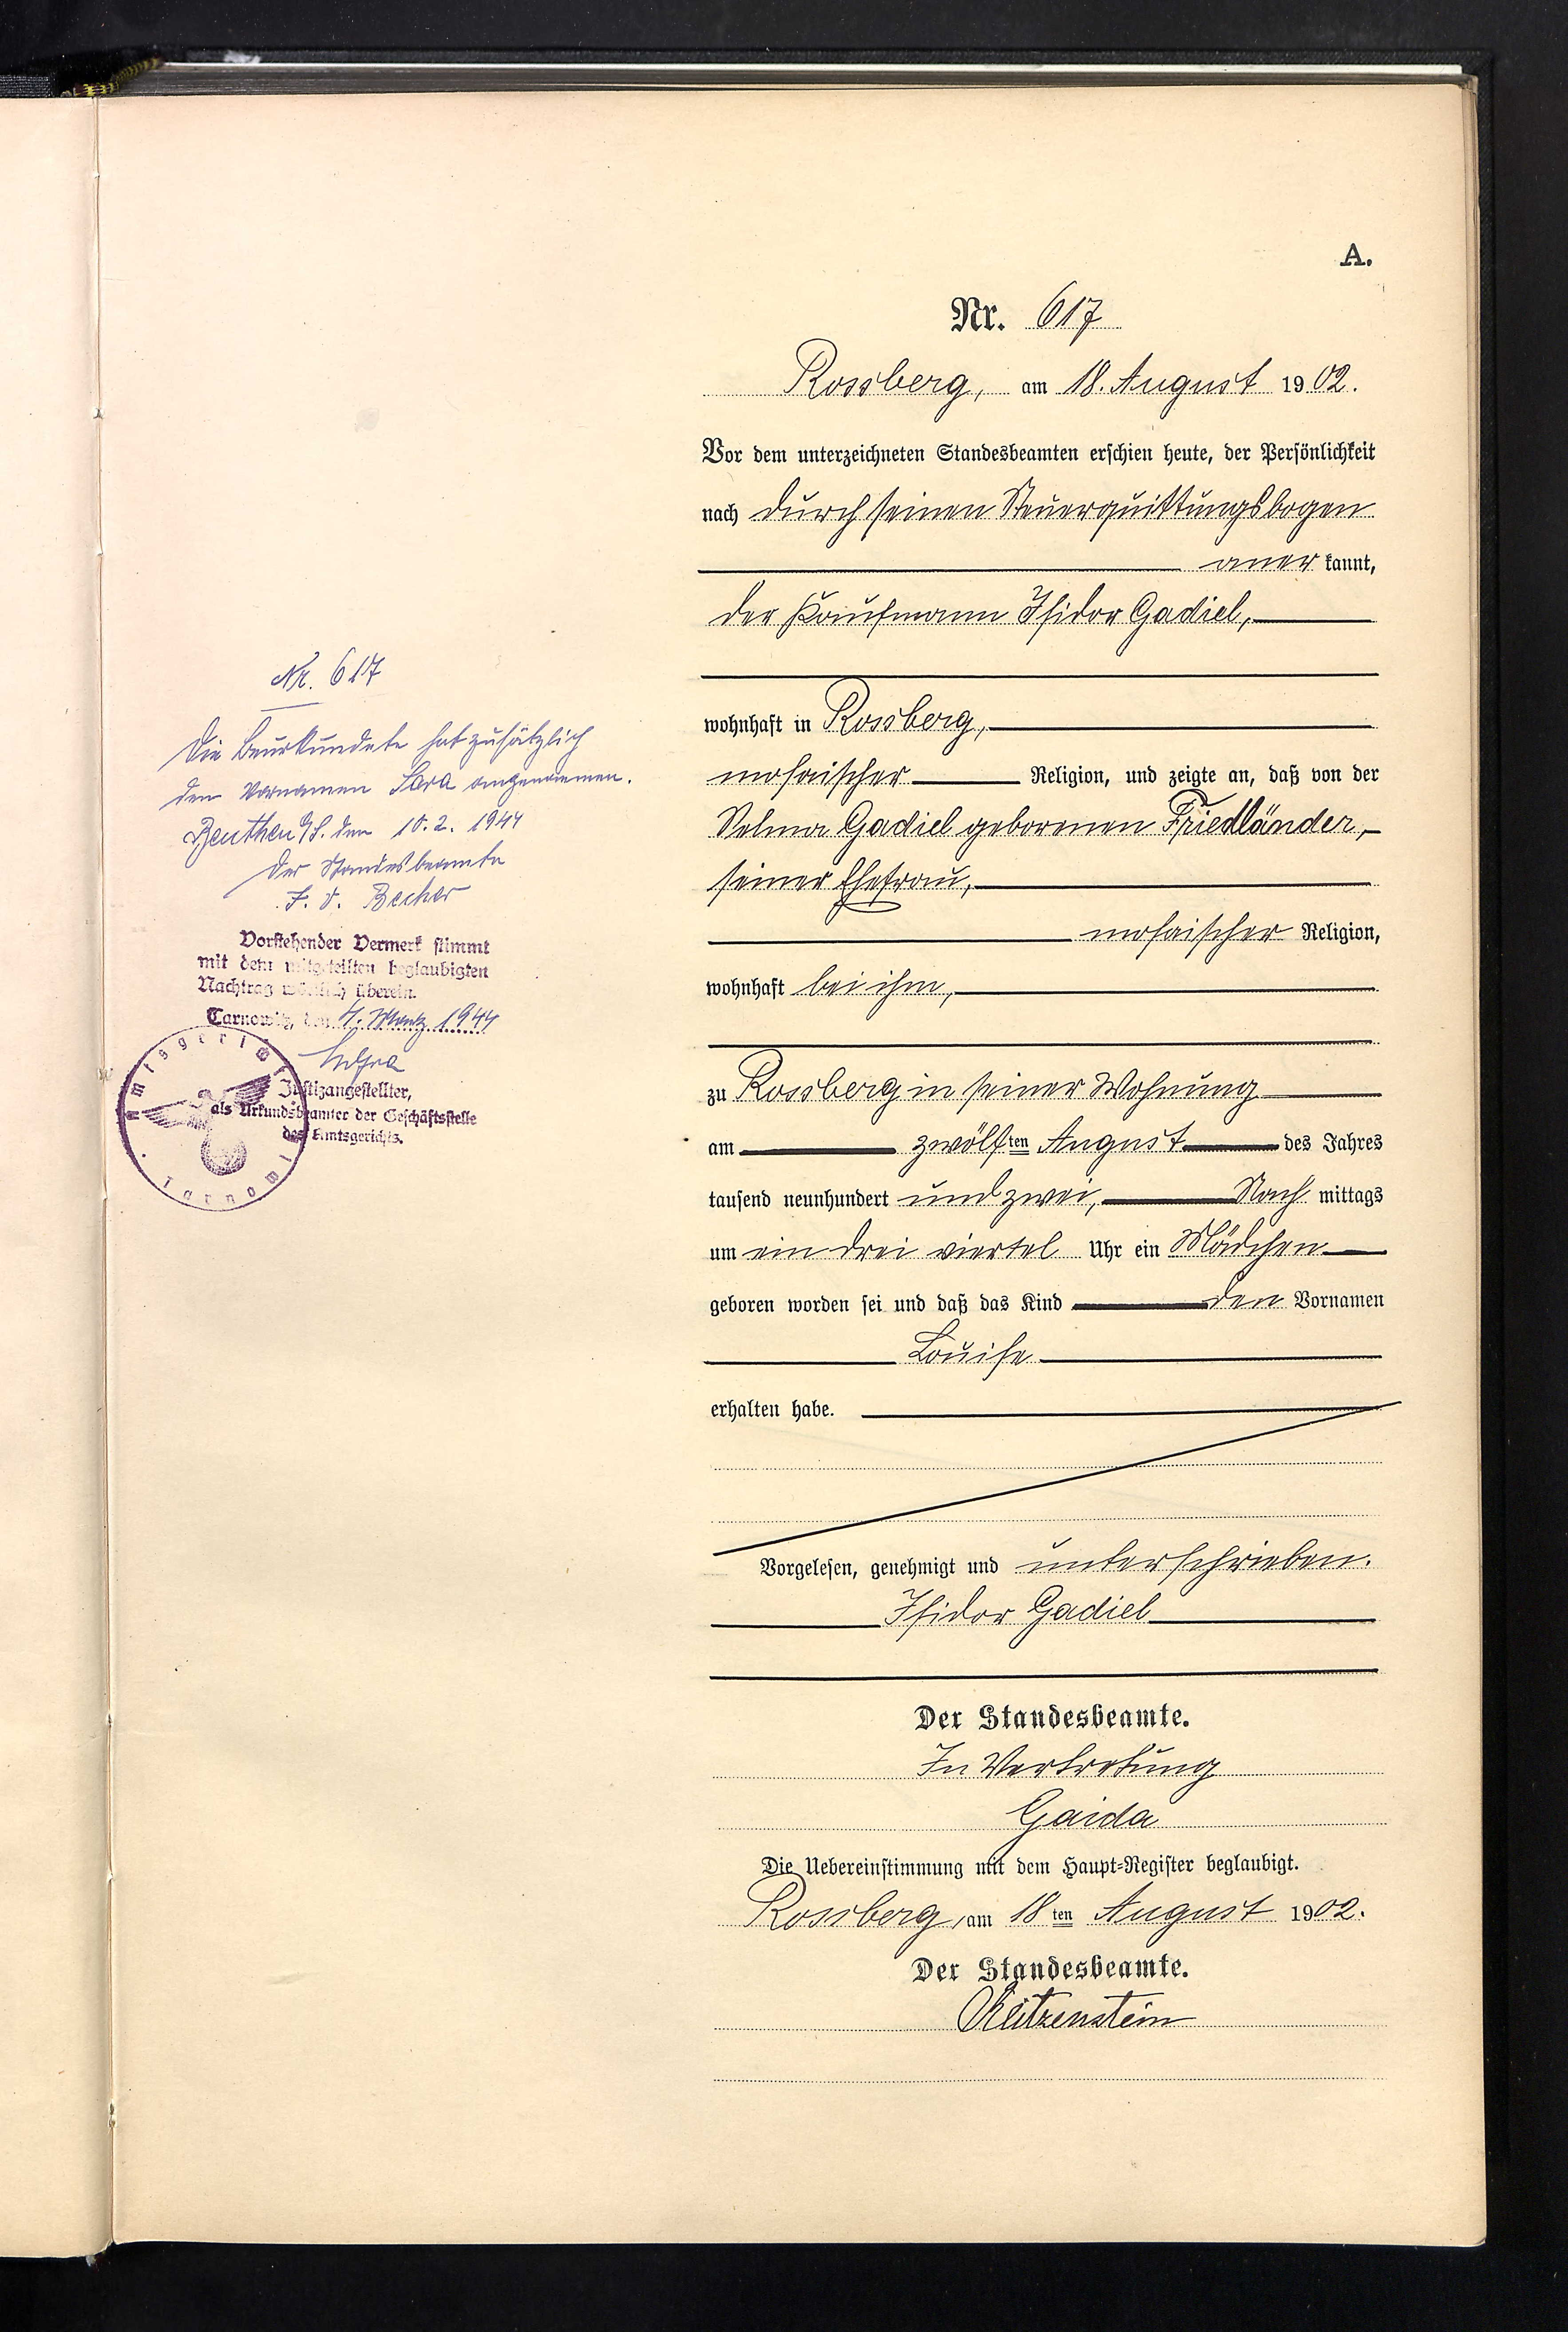 A.
Nr. 617
Rossberg, am 18. August 1902.
Vor dem unterzeichneten Standesbeamten erschien heute, der Persönlichkeit
nach durch seinen Steuerquittungsbogen
anerkannt,
der Kaufmann Isidor Gadiel,
wohnhaft in Rossberg,
mosaischer Religion, und zeigte an, daß von der
Selma Gadiel geborenen Friedländer,
seiner Ehefrau,
mosaischer Religion,
wohnhaft bei ihm,
zu Rossberg in seiner Wohnung
am zwölften August des Jahres
tausend neunhundert und zwei, Nachmittags
um ein drei viertel Uhr ein Mädchen
geboren worden sei und daß das Kind den Vornamen
Louise
erhalten habe.
Vorgelesen, genehmigt und unterschrieben.
Isidor Gadiel
Der Standesbeamte.
In Vertretung
Gaida
Die Uebereinstimmung mit dem Haupt-Register beglaubigt.
Rossberg, am 18ten August 1902.
Der Standesbeamte.
Reitzenstein
Nr. 617
Die Beurkundete hat zusätzlich
den Vornamen Sara angenommen.
Beuthen O/S. den 10.2.1944
Der Standesbeamte
I. V. Becher
Vorstehender Vermerk stimmt
mit dem mitgeteilten beglaubigten
Nachtrag wörtlich überein.
Tarnowitz, den 4. März 1944
Justizangestellter,
als Urkundsbeamter der Geschäftsstelle
des Amtsgerichts.
Amtsgericht
Tarnowitz